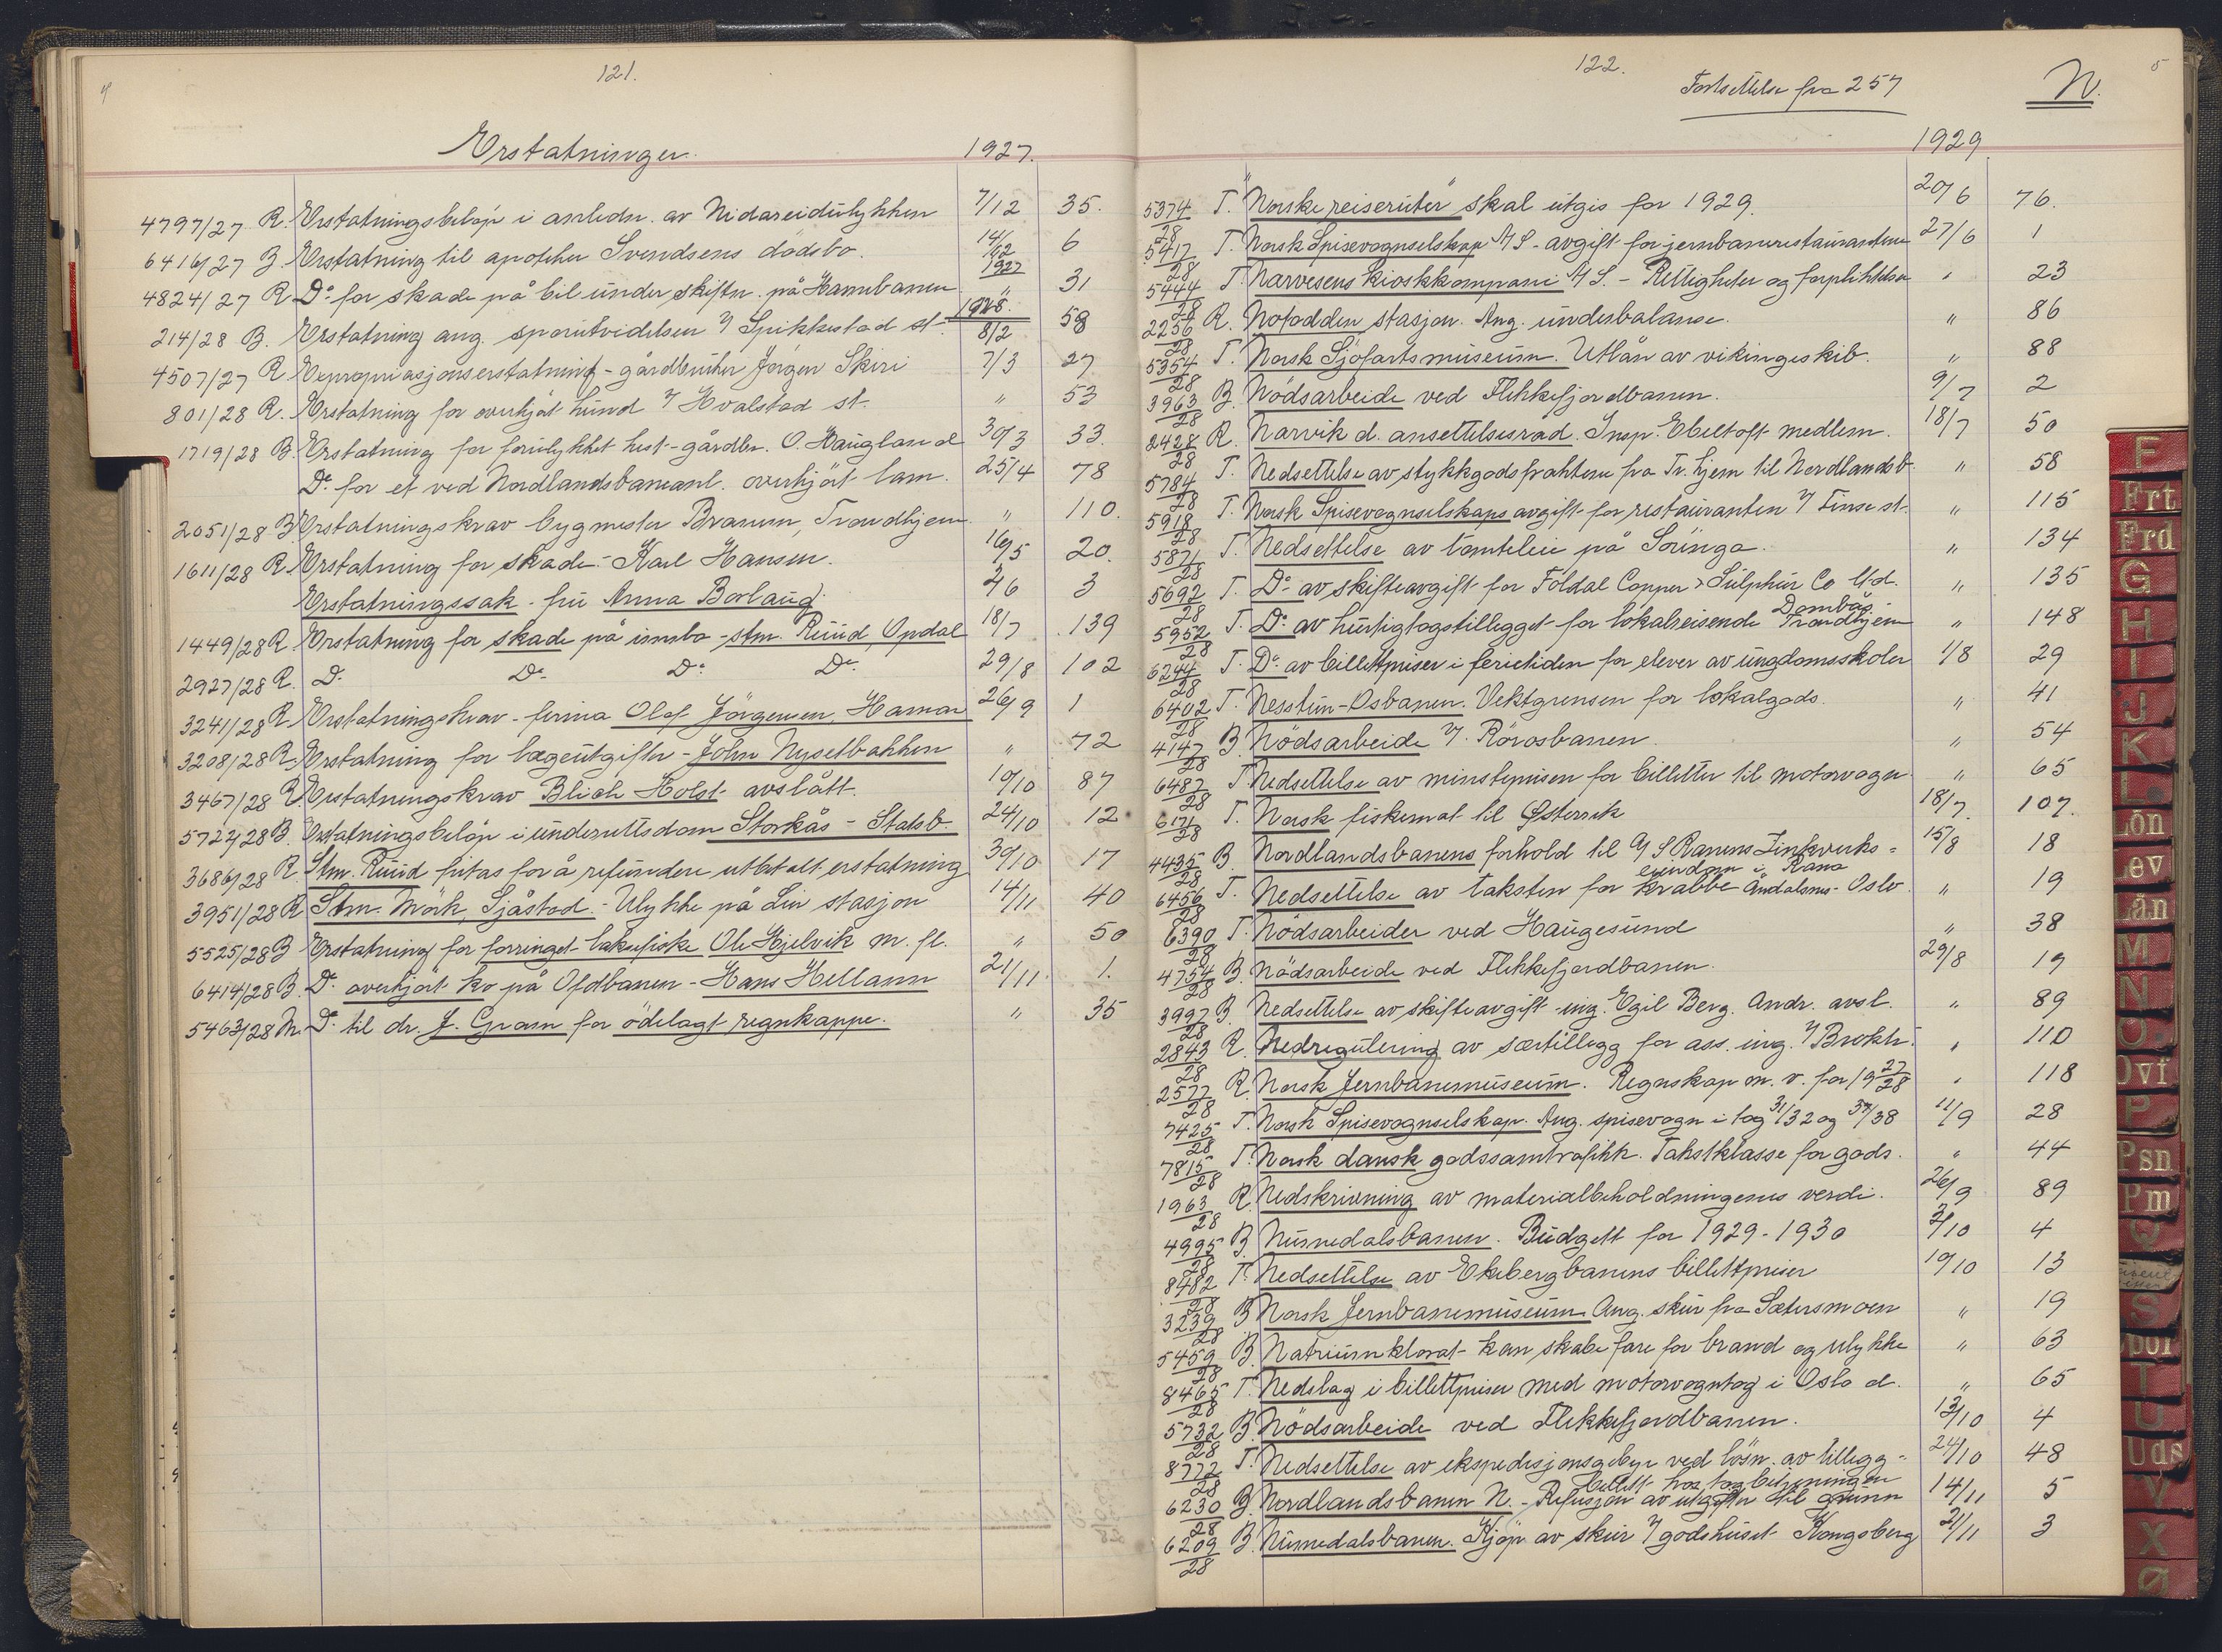 121.
Erstatninger. 1927.
4797/27 R. Erstatningsbeløp i anledn. av Nidareidulykken 7/12 35.
6416/27 B. Erstatning til apoteker Svendsens dödsbo. 14/12 6
1927
4824/27 R. Do for skade på bil under skiftn. på Hamnbanen " 31
1928.
214/28 B. Erstatning ang. sporutvidelsen v/ Spikkestad st. 8/2 58
4507/27 R. Expropriasjonserstatning - gårdbruker Jörgen Skiri 7/3 27
801/28 R. Erstatning for overkjört hund v/ Hvalstad st. " 53
1719/28 B. Erstatning for forulykket hest - gårdbr. O. Haugland 30/3 33
Do for et ved Nordlandsbaneanl. overkjört lam. 25/4 78
2051/28 B. Erstatningskrav bygmester Branum, Trondhjem. " 110.
1611/28 R. Erstatning for skade - Karl Hansen. 16/5 20
Erstatningssak - fru Anna Borlaug. 4/6 3
1449/28 R. Erstatning for skade på innbo - stm. Ruud, Opdal 18/7 139
2927/28 R. Do Do Do Do 29/8 102
3241/28 R. Erstatningskrav - firma Olaf Jörgensen, Hamar 26/9 1
3208/28 R. Erstatning for lægeutgifter - John Nysetbakken " 72
3467/28 R. Erstatningskrav Blich Holst avslått. 10/10 87
5727/28 B. Erstatningsbelöp i underrettsdom Storkås - Statsb. 24/10 12
3686/28 R. Stm. Ruud fritas for å refundere utbetalt erstatning 30/10 17
3951/28 R. Stm. Mörk, Sjåstad. - Ulykke på Lier stasjon 14/11 40
5525/28 B. Erstatning for forringet laksefiske Ole Hjelvik m. fl. " 50
6414/28 B. Do overkjört ko på Ofotbanen - Hans Hellann 21/11 1.
5463/28 M. Do til dr. J. Gram for ödelagt regnkappe. " 35
122.
Fortsettelse fra 257 N.
1929
5374/28 T. "Norske reiseruter" skal utgis for 1929. 20/6 76.
5417/28 T. Norsk Spisevognselskap A/S - avgift for jernbanerestaurantene 27/6 1
5444/28 T. Narvesens kioskkompani A/S. - Rettigheter og forpliktelser " 23
2256/28 R. Notodden stasjon. Ang. underbalanse. " 86
5354/28 T. Norsk Sjøfartsmuseum. Utlån av vikingeskib. " 88
3963/28 B. Nödsarbeide ved Flekkefjordbanen. 9/7 2
2428/28 R. Narvik d. ansettelsesråd. Insp. Ebeltoft medlem. 18/7 50
5784/28 T. Nedsettelse av stykkgodsfraktene fra Tr.hjem til Nordlandsb. " 58
5918/28 T. Norsk Spisevognselskaps avgift for restauranten v/ Finse st. " 115
5871/28 T. Nedsettelse av tomteleie på Sörunga. " 134
5692/28 T. Do av skifteavgift for Foldal Copper & Sulphur Co Ltd. " 135
5952/28 T. Do av hurtigtogstillegget for lokalreisende Dombås - Trondhjem " 148
6244/28 T. Do av billettpriser i ferietiden for elever av ungdomsskoler 1/8 29
6402/28 T. Nesttun-Osbanen. Vektgrensen for lokalgods. " 41
4147/28 B. Nödsarbeide v/ Rörosbanen " 54
6487/28 T. Nedsettelse av minsteprisen for billetter til motorvogn " 65
6171/28 T. Norsk fiskemat til Østerrik 18/7. 107.
4435/28 B. Nordlandsbanens forhold til A/S Ranens Zinkverks =
eiendom i Rana 15/8 18
6456/28 T. Nedsettelse av taksten for krabbe Åndalsnes - Oslo " 19
6390/28 T. Nödsarbeider ved Haugesund " 38
4754/28 B. Nödsarbeide ved Flekkefjordbanen. 29/8 19
3997/28 B. Nedsettelse av skifteavgift - ing. Egil Berg. Andr. avsl. " 89
2843/28 R. Nedregulering av særtillegg for ass. ing. v/ Brokt. " 110
2577/28 R. Norsk Jernbanemuseum. Regnskap m. v. for 1927/28 " 118
7425/28 T. Norsk Spisevognselskap. Ang. spisevogn i tog 31/32 og 37/38 11/9 28
7815/28 T. Norsk dansk godssamtrafikk. Takstklasse for gods. " 44
1963/28 R. Nedskrivning av materialbeholdningenes verdi. 26/9 89
4995/28 B. Numedalsbanen. Budgett for 1929-1930 3/10 4
8482/28 T. Nedsettelse av Ekebergbanens billettpriser 10/10 13
3239/28 B. Norsk Jernbanemuseum. Ang. skur fra Sætersmoen " 19
5459/28 B. Natriumklorat - kan skabe fare for brand og ulykke " 63
8465/28 T. Nedslag i billettpriser med motorvogntog i Oslo d. " 65
5732/28 B. Nödsarbeide ved Flekkefjordbanen. 13/10 4
8772/28 T. Nedsettelse av ekspedisjonsgebyr ved lösn. av tillegg =
billett hos togbetjeningen 24/10 48
6230/28 B. Nordlandsbanen N. - Refusjon av utgifter til grunn 14/11 5
6209/28 B. Numedalsbanen. Kjöp av skur v/ godshuset Kongsberg 21/11 3
F
Frt
Frd
G
H
I
J
K
L
Lön
Lev
Lån
M
N
O
Ovf
P
Psn
Pm
Q
S
Spor
T
U
Uds
V
X
Ø